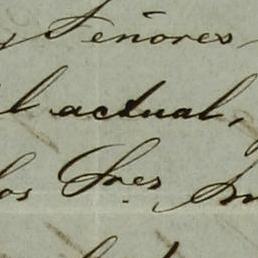 y Señores
l actual,
los Sres